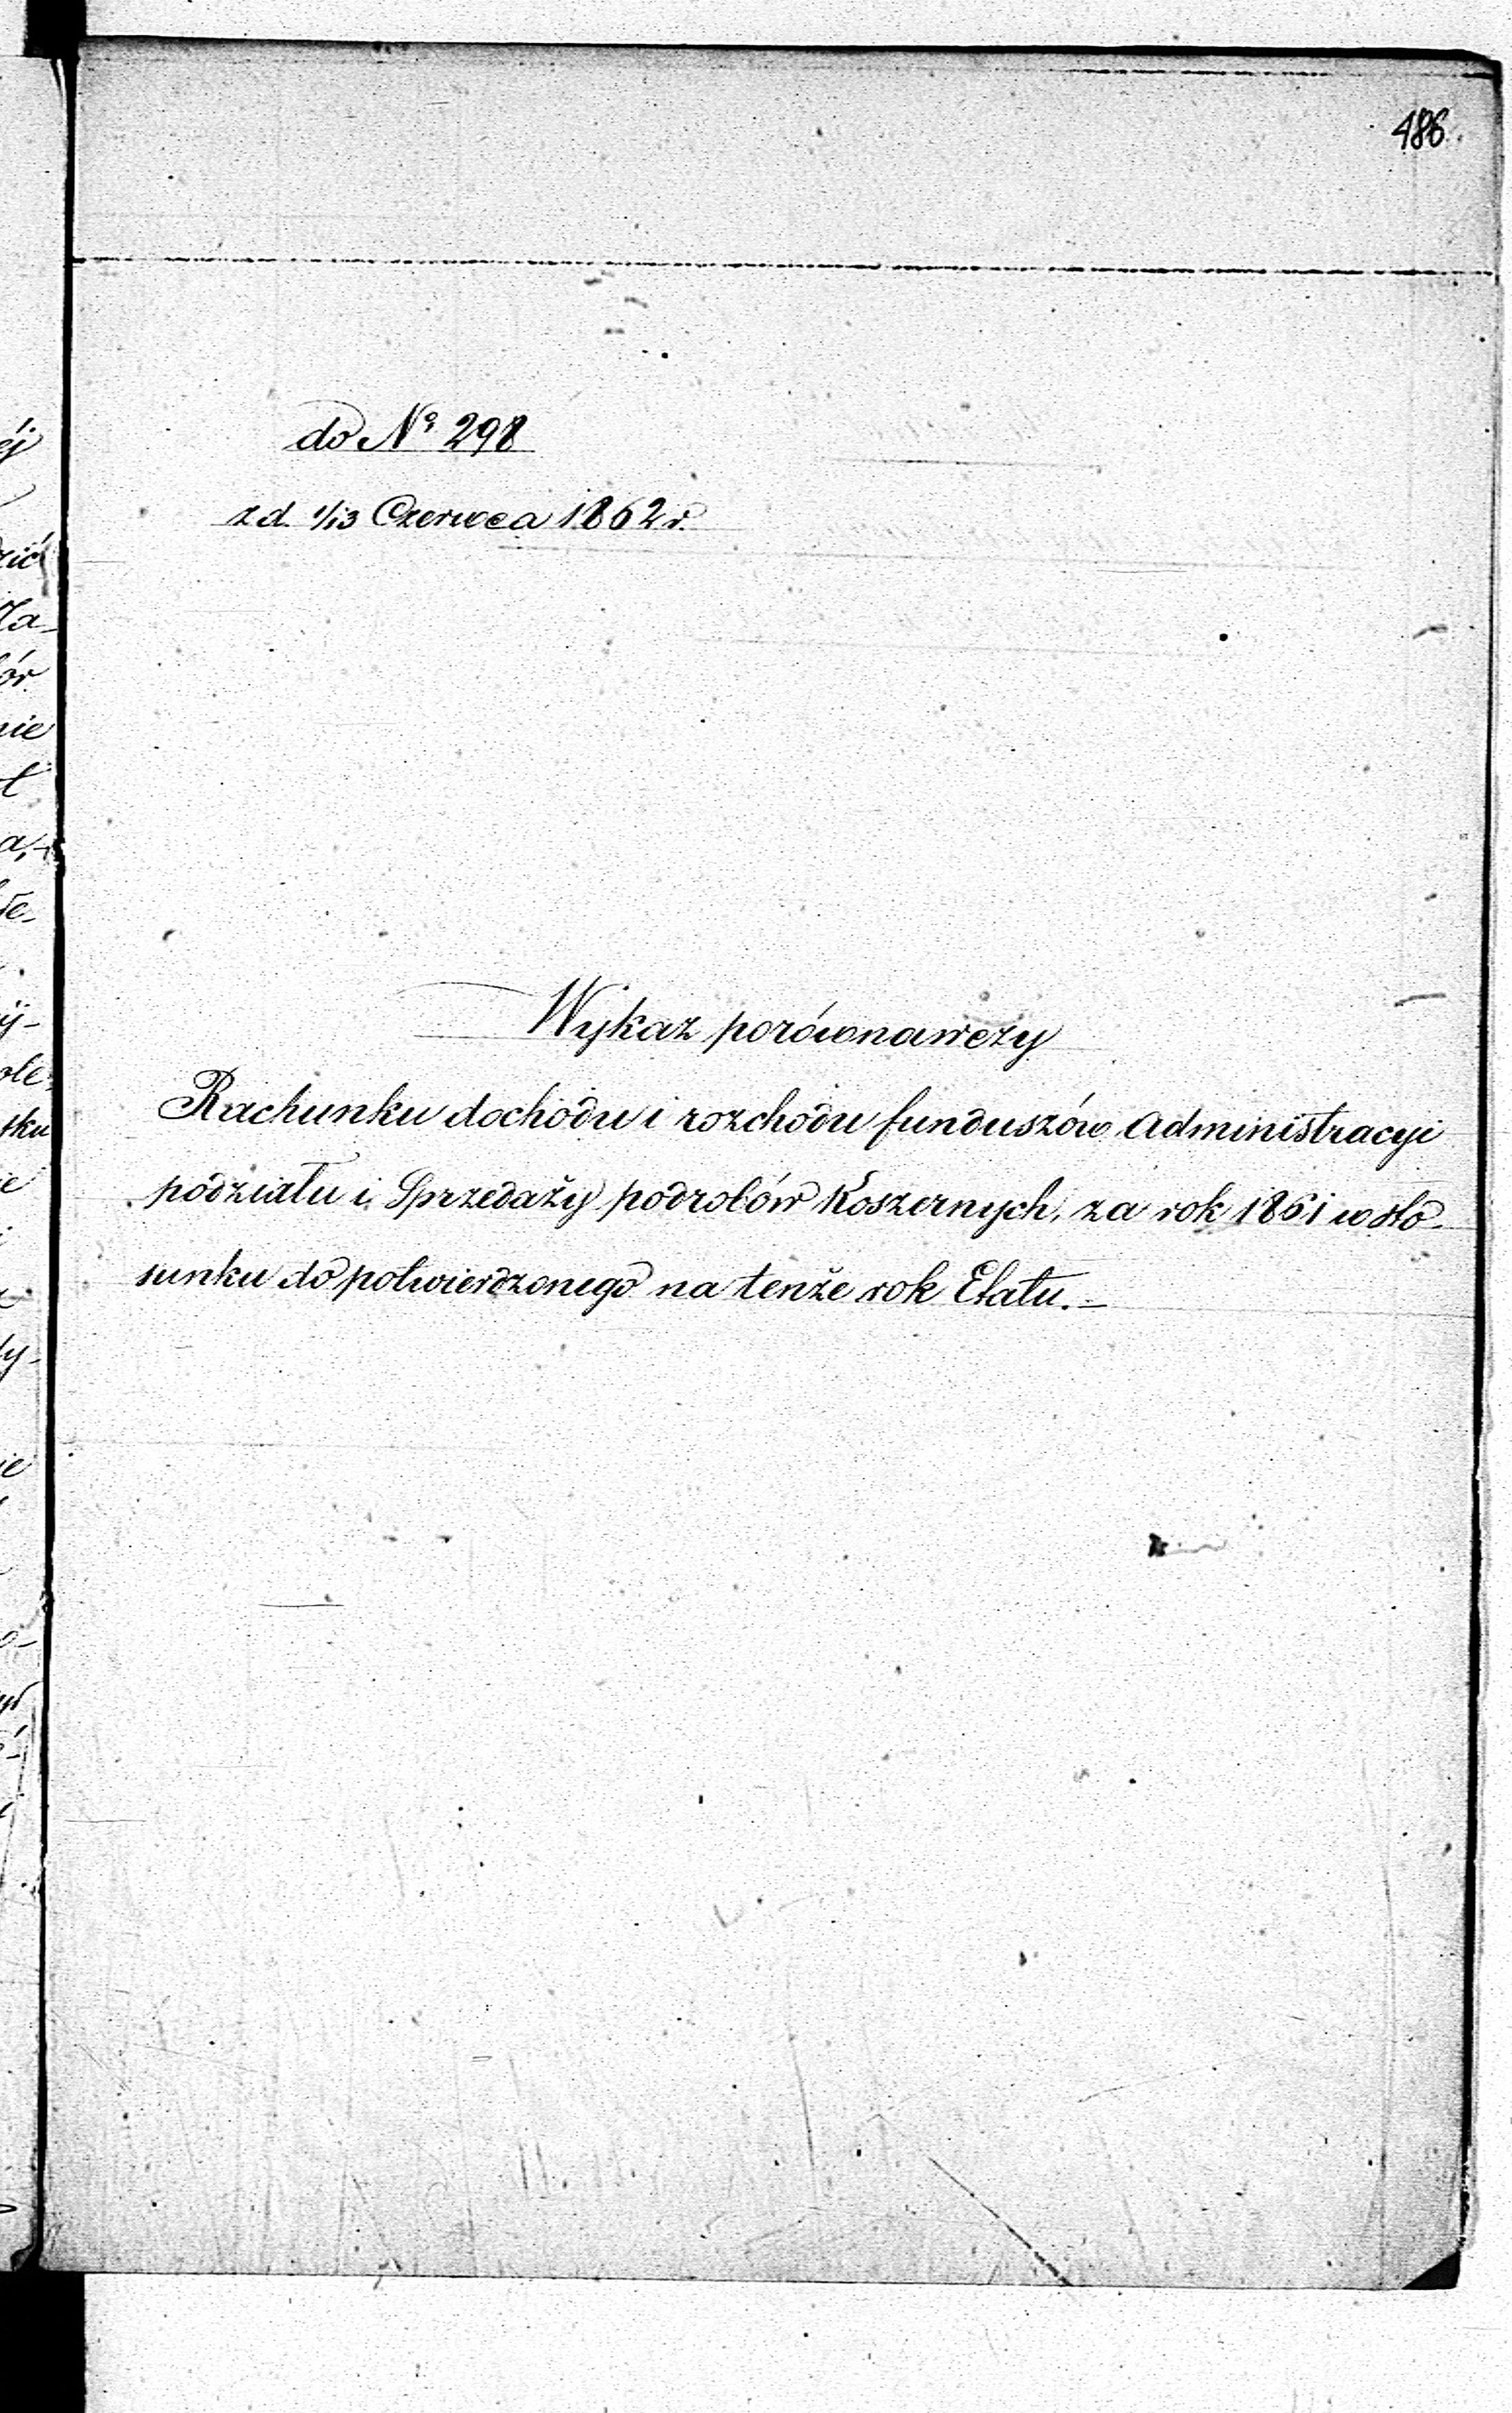 486.
do Nº 298
z d. 1/13 Czerwca 1862 r.
Wykaz porównawczy
Rachunku dochodu i rozchodu funduszów Administracyi
podziału i Sprzedaży podrobów Koszernych, za rok 1861 w sto-
sunku do potwierdzonego na tenże rok Etatu. –